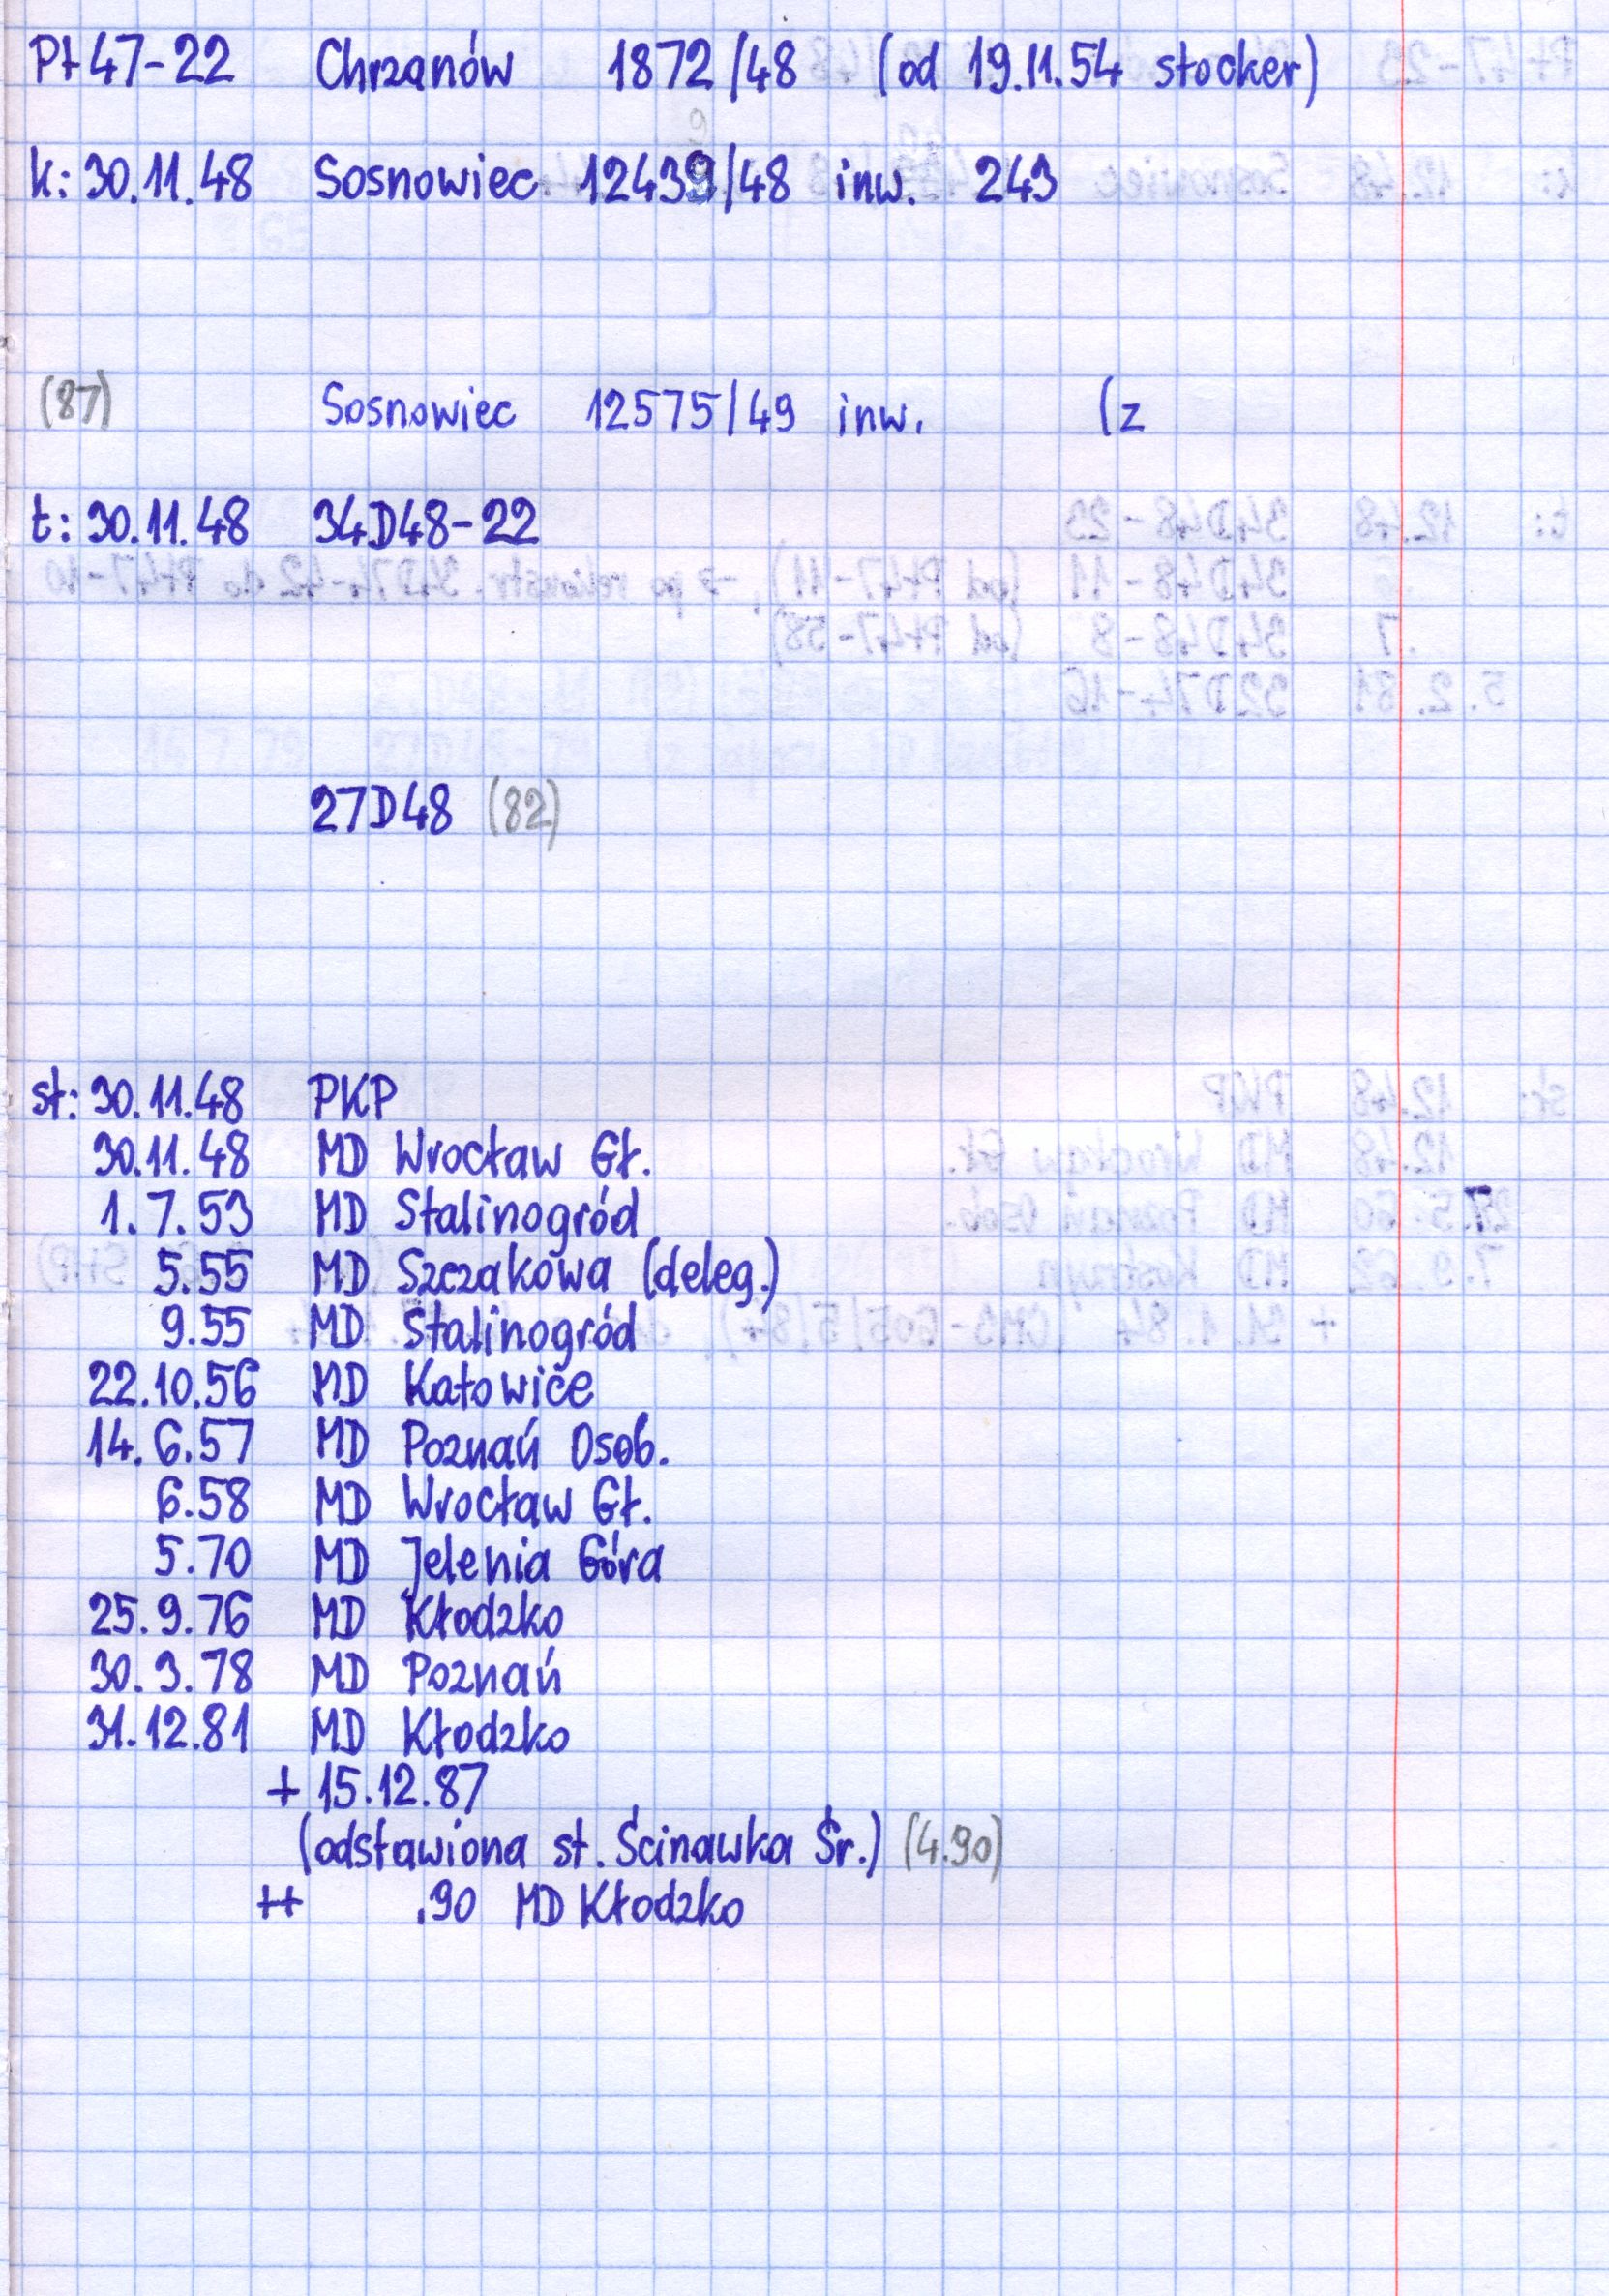 Pt47-22 Chrzanów 1872/48 (od 19.11.54 stocker)
k: 30.11.48 Sosnowiec 12439/48 inw. 243
(87) Sosnowiec 12575/49 inw. (z
t: 30.11.48 34D48-22
27D48 (82)
st: 30.11.48 PKP
30.11.48 MD Wrocław Gł.
1.7.53 MD Stalinogród
5.55 MD Szczakowa (deleg.)
9.55 MD Stalinogród
22.10.56 MD Katowice
14.6.57 MD Poznań Osob.
6.58 MD Wrocław Gł.
5.70 MD Jelenia Góra
25.9.76 MD Kłodzko
30.3.78 MD Poznań
31.12.81 MD Kłodzko
+ 15.12.87
(odstawiona st. Ścinawka Śr.) (4.90)
++ .90 MD Kłodzko